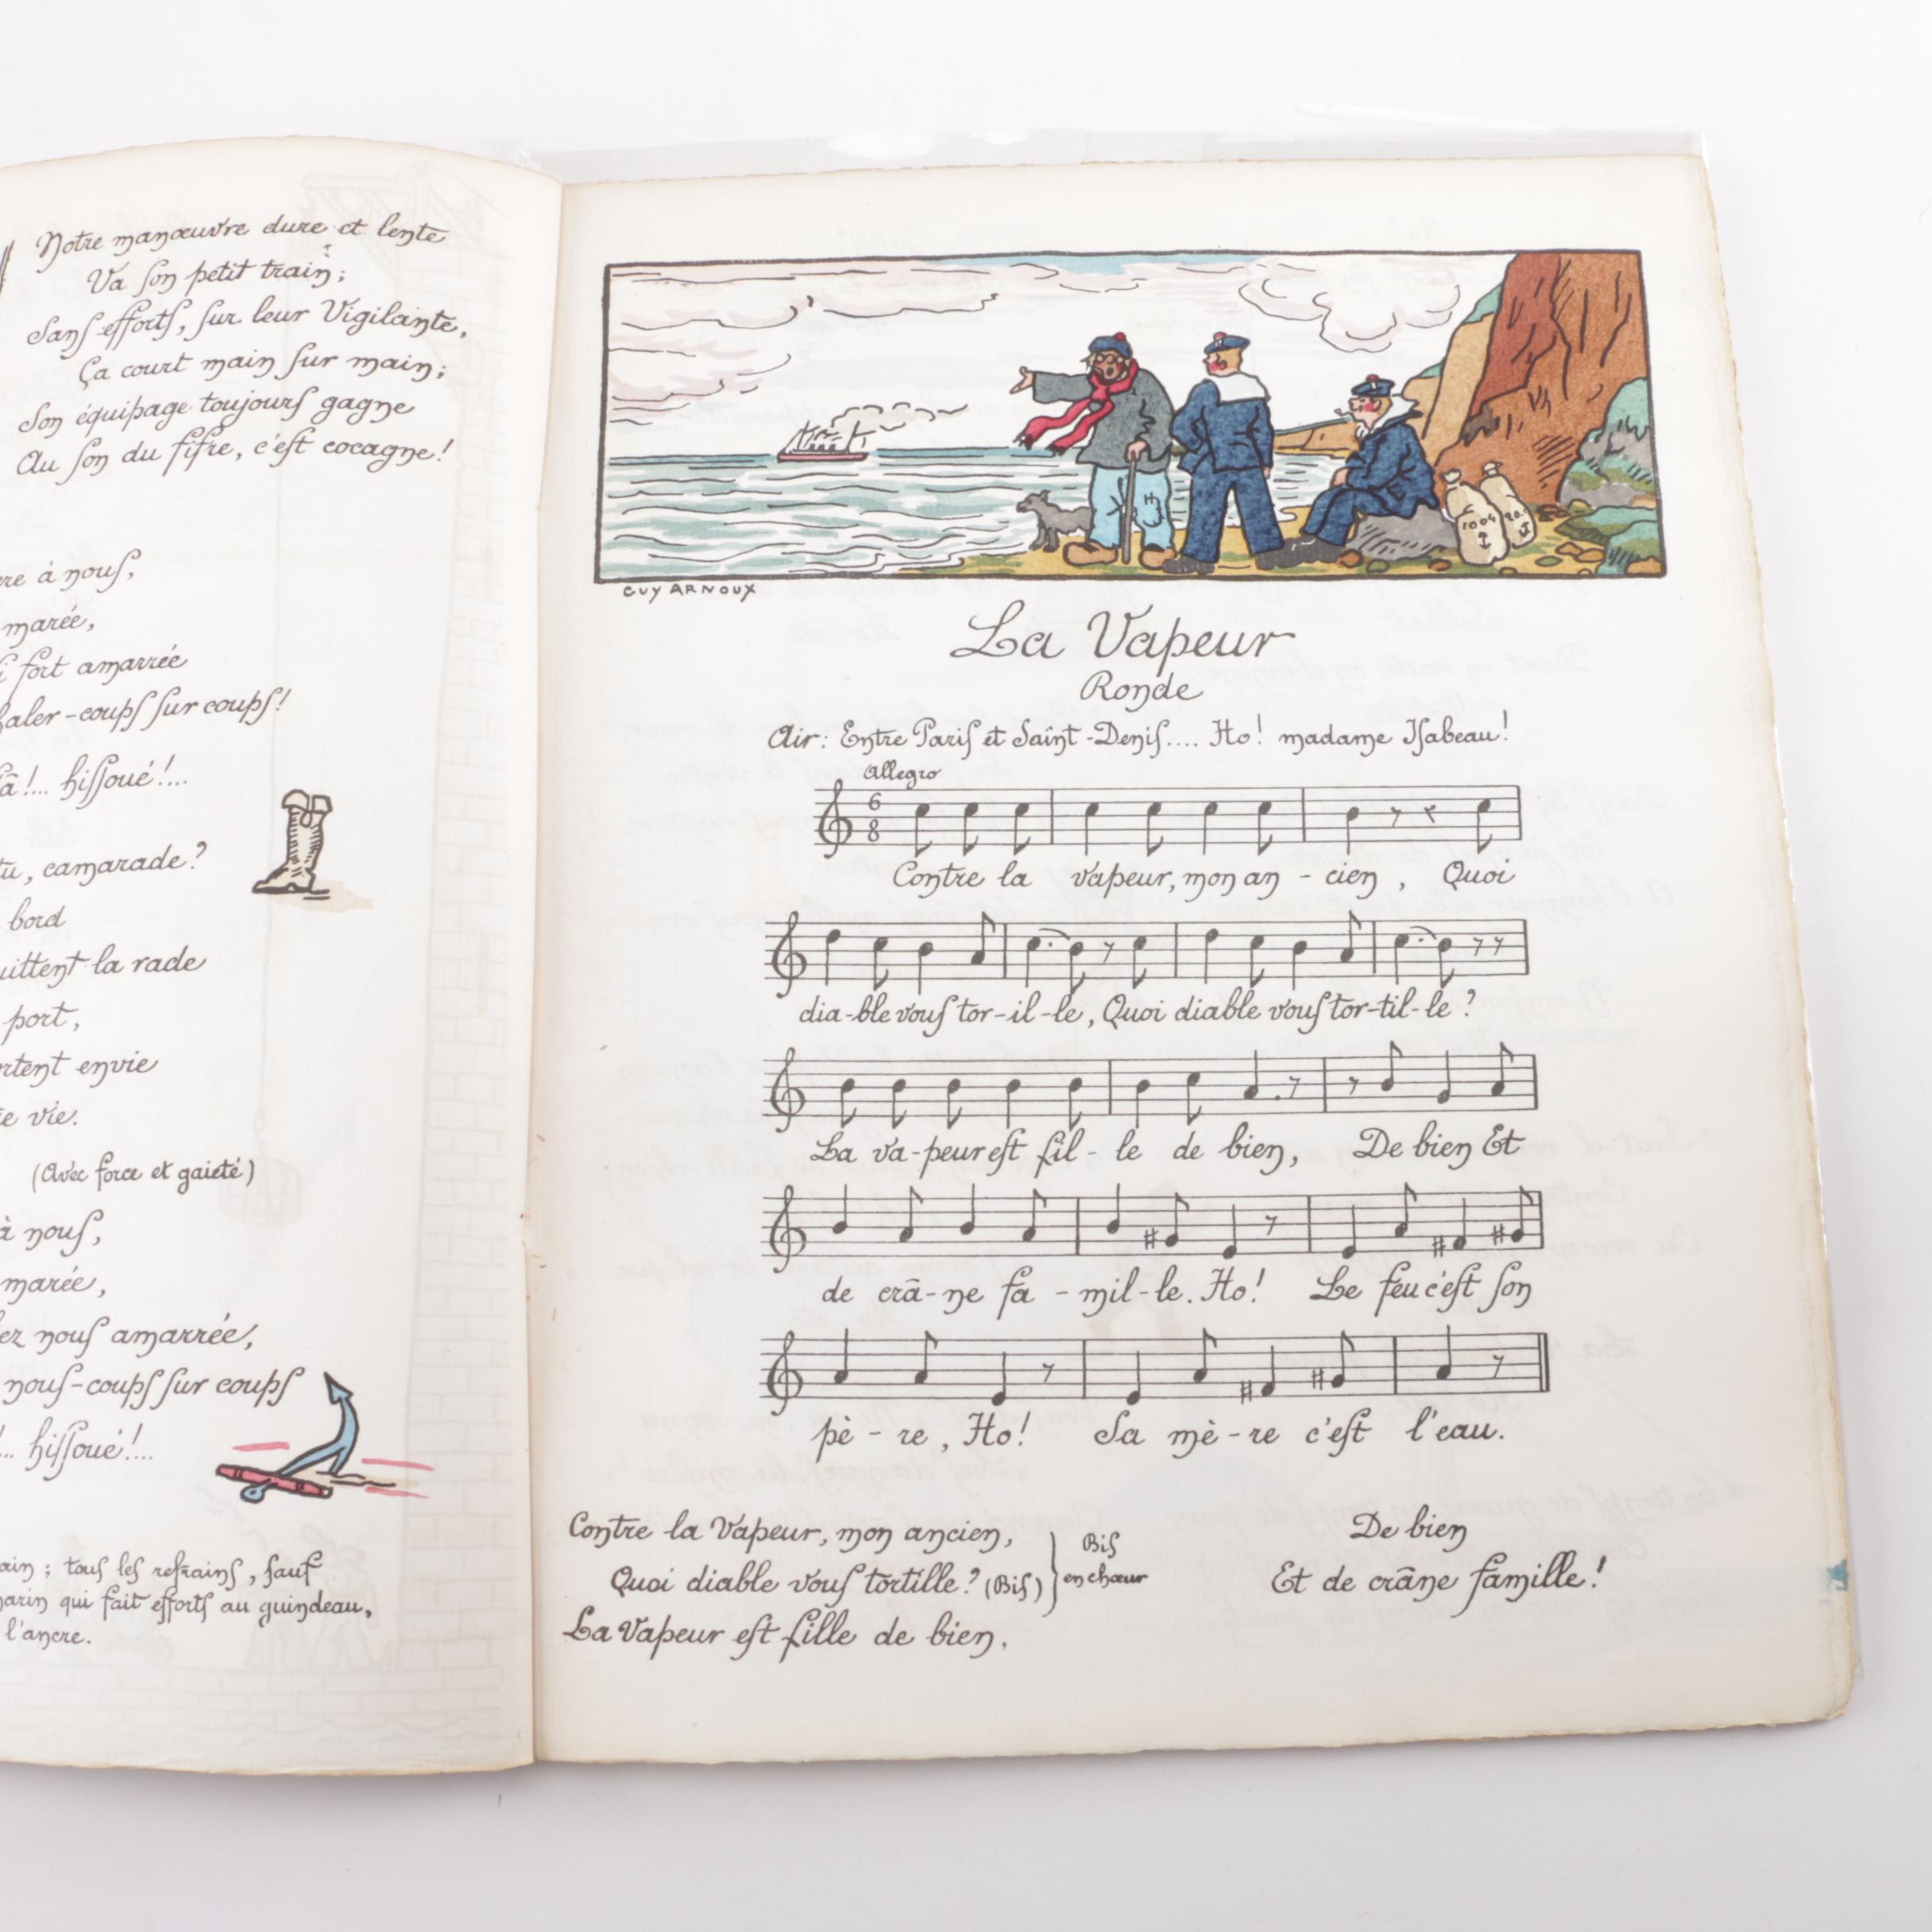 Notre manœuvre dure et lente
Va son petit train;
Sans efforts, sur leur Vigilante,
Ça court main sur main;
Son équipage toujours gagne
Au son du fifre, c'est cocagne!
à nous,
marée,
fort amarrée
haler-coups sur coups!
hissoué!...
camarade?
bord
la rade
port,
envie
vie.
(Avec force et gaieté)
à nous,
marée,
nous amarrée,
nous-coups sur coups
hissoué!...
tous les refrains, sauf
qui fait efforts au guindeau,
l'ancre.
1004
GUY ARNOUX
La Vapeur
Ronde
Air: Entre Paris et Saint-Denis.... Ho! madame Isabeau!
Allegro
6
8
Contre la vapeur, mon an - cien, Quoi
dia-ble vous tor-il-le, Quoi diable vous tor-til-le?
La va-peur est fil - le de bien, De bien Et
de crâ-ne fa - mil-le. Ho! Le feu c'est son
pè - re, Ho! Sa mè-re c'est l'eau.
Contre la Vapeur, mon ancien,
Quoi diable vous tortille? (Bis)
Bis
en chœur
La Vapeur est fille de bien,
De bien
Et de crâne famille!